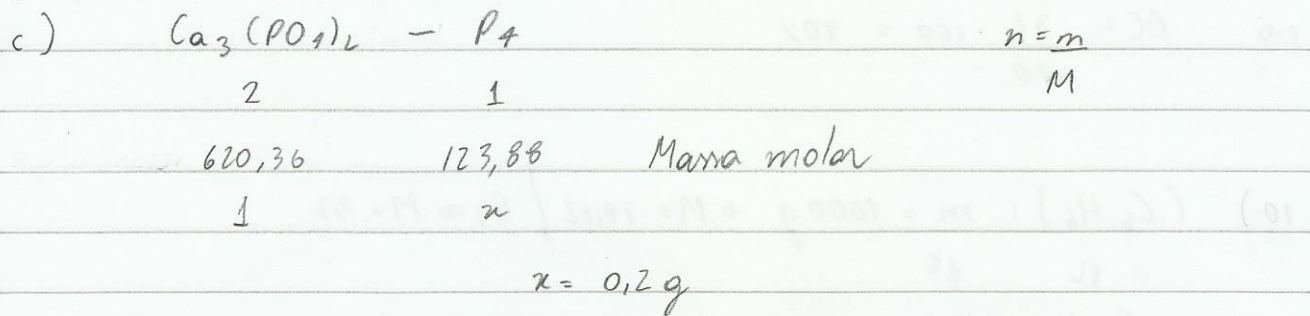 c) Ca3(PO4)2 - P4 n = m/M
2 1
620,36 123,88 Massa molar
1 x
x = 0,2 g